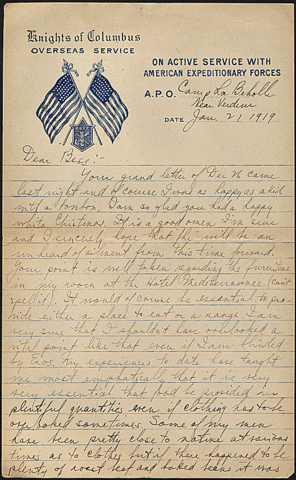 Knights of Columbus
OVERSEAS SERVICE
ON ACTIVE SERVICE WITH
AMERICAN EXPEDITIONARY FORCES
A.P.O. Camp La Beholle
Near Verdun
DATE Jan. 21 1919
Dear Bess:-
Your grand letter of Dec 26 came
last night and of course I was as happy as a kid
with a tomtom. I am so glad you had a happy
white Christmas. It is a good omen I'm sure
and I sincerely hope that flu will be an
unheard of ailment from this time forward.
Your point is well taken regarding the furniture
in my room at the Hotel Mediterranee (can't
spell it). It would of course be essential to pro-
vide either a place to eat or a range. I am
very sure that I shouldn't have overlooked a
vital point like that even if I am blinded
by Eros. My experiences to date have taught
me most emphatically that it is very
very essential that food be provided in
plentiful quantities even if clothing has to be
overlooked sometimes. Some of my men
have been pretty close to nature at various
times as to clothes but if there happened to be
plenty of roast beef and baked beans it was